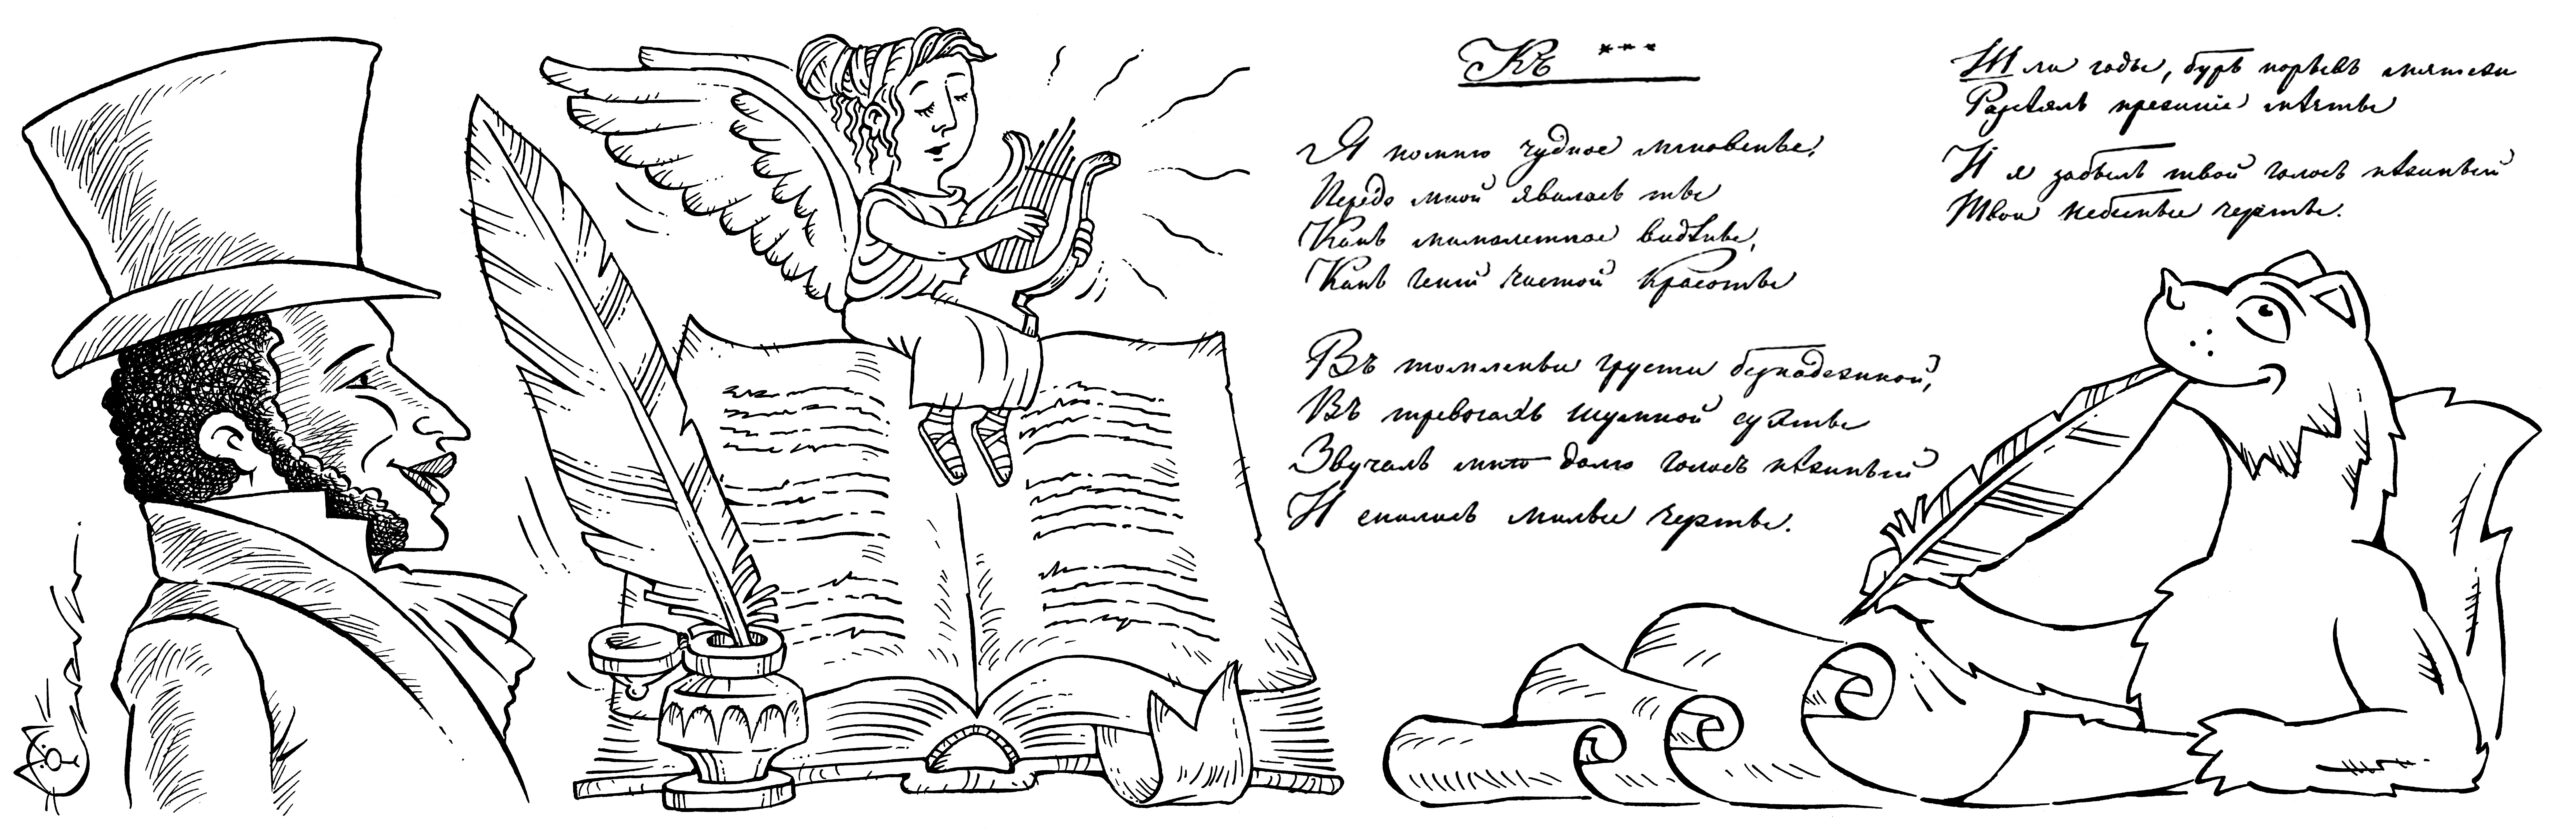 Къ ***
Я помню чудное мгновенье,
Передо мной явилась ты
Какъ мимолетное видѣнье,
Какъ геній чистой красоты
Въ томленьи грусти безнадежной,
Въ тревогахъ шумной суеты
Звучалъ мнѣ долго голосъ нѣжный
И снились милые черты.
Шли годы, бурь порывъ мятежн
Разсѣялъ прежніе мѣчты
И я забылъ твой голосъ нѣжный
Твои небесные черты.